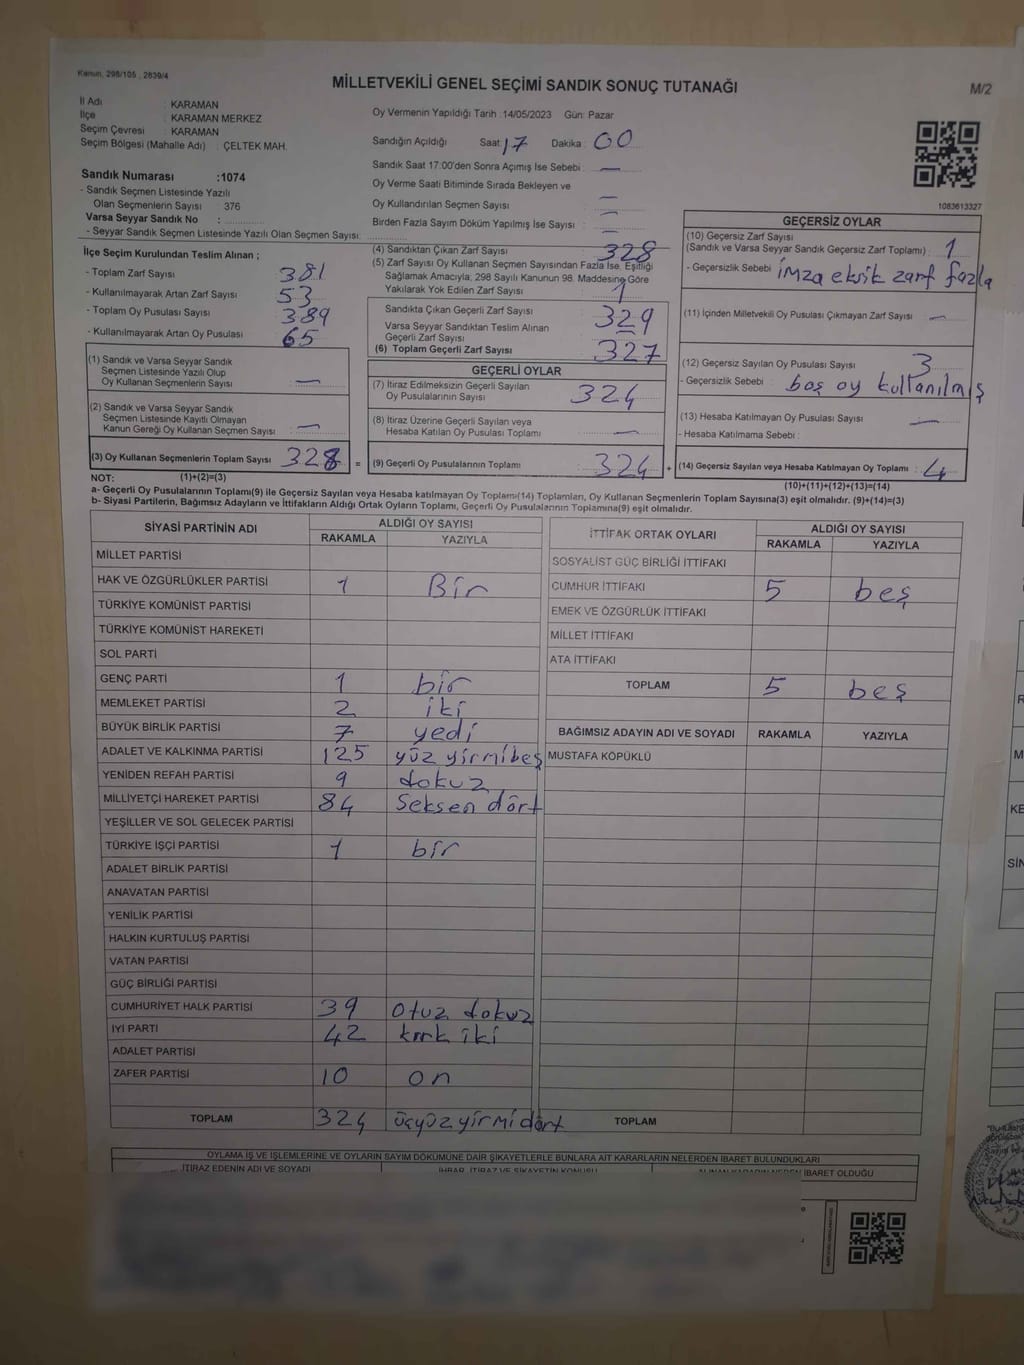 Kanun, 298/105 , 2839/4
MİLLETVEKİLİ GENEL SEÇİMİ SANDIK SONUÇ TUTANAĞI
M/2
İl Adı : KARAMAN
İlçe : KARAMAN MERKEZ
Seçim Çevresi : KARAMAN
Seçim Bölgesi (Mahalle Adı) : ÇELTEK MAH.
Sandık Numarası :1074
- Sandık Seçmen Listesinde Yazılı
Olan Seçmenlerin Sayısı : 376
Varsa Seyyar Sandık No :
- Seyyar Sandık Seçmen Listesinde Yazılı Olan Seçmen Sayısı:
İlçe Seçim Kurulundan Teslim Alınan ;
- Toplam Zarf Sayısı : 381
- Kullanılmayarak Artan Zarf Sayısı : 53
- Toplam Oy Pusulası Sayısı : 389
- Kullanılmayarak Artan Oy Pusulası : 65
(1) Sandık ve Varsa Seyyar Sandık
Seçmen Listesinde Yazılı Olup
Oy Kullanan Seçmenlerin Sayısı : —
(2) Sandık ve Varsa Seyyar Sandık
Seçmen Listesinde Kayıtlı Olmayan
Kanun Gereği Oy Kullanan Seçmen Sayısı : —
(3) Oy Kullanan Seçmenlerin Toplam Sayısı : 328 =
Oy Vermenin Yapıldığı Tarih :14/05/2023 Gün: Pazar
Sandığın Açıldığı Saat: 17 Dakika : 00
Sandık Saat 17:00'den Sonra Açımış İse Sebebi : —
Oy Verme Saati Bitiminde Sırada Bekleyen ve
Oy Kullandırılan Seçmen Sayısı : —
Birden Fazla Sayım Döküm Yapılmış İse Sayısı : —
(4) Sandıktan Çıkan Zarf Sayısı : 328
(5) Zarf Sayısı Oy Kullanan Seçmen Sayısından Fazla İse, Eşitliği
Sağlamak Amacıyla, 298 Sayılı Kanunun 98. Maddesine Göre
Yakılarak Yok Edilen Zarf Sayısı : 1
Sandıkta Çıkan Geçerli Zarf Sayısı : 329
Varsa Seyyar Sandıktan Teslim Alınan
Geçerli Zarf Sayısı : —
(6) Toplam Geçerli Zarf Sayısı : 327
GEÇERLİ OYLAR
(7) İtiraz Edilmeksizin Geçerli Sayılan
Oy Pusulalarının Sayısı : 324
(8) İtiraz Üzerine Geçerli Sayılan veya
Hesaba Katılan Oy Pusulası Toplamı : —
(9) Geçerli Oy Pusulalarının Toplamı : 324 +
1083613327
GEÇERSİZ OYLAR
(10) Geçersiz Zarf Sayısı
(Sandık ve Varsa Seyyar Sandık Geçersiz Zarf Toplamı) : 1
- Geçersizlik Sebebi : imza eksik zarf fazla
(11) İçinden Milletvekili Oy Pusulası Çıkmayan Zarf Sayısı : —
(12) Geçersiz Sayılan Oy Pusulası Sayısı : 3
- Geçersizlik Sebebi : boş oy kullanılmış
(13) Hesaba Katılmayan Oy Pusulası Sayısı : —
- Hesaba Katılmama Sebebi :
(14) Geçersiz Sayılan veya Hesaba Katılmayan Oy Toplamı : 4
NOT: (1)+(2)=(3) (10)+(11)+(12)+(13)=(14)
a- Geçerli Oy Pusulalarının Toplamı(9) ile Geçersiz Sayılan veya Hesaba katılmayan Oy Toplamı(14) Toplamları, Oy Kullanan Seçmenlerin Toplam Sayısına(3) eşit olmalıdır. (9)+(14)=(3)
b- Siyasi Partilerin, Bağımsız Adayların ve İttifakların Aldığı Ortak Oyların Toplamı, Geçerli Oy Pusulalarının Toplamına(9) eşit olmalıdır.
SİYASİ PARTİNİN ADI ALDIĞI OY SAYISI
RAKAMLA YAZIYLA
MİLLET PARTİSİ
HAK VE ÖZGÜRLÜKLER PARTİSİ 1 Bir
TÜRKİYE KOMÜNİST PARTİSİ
TÜRKİYE KOMÜNİST HAREKETİ
SOL PARTİ
GENÇ PARTİ 1 bir
MEMLEKET PARTİSİ 2 iki
BÜYÜK BİRLİK PARTİSİ 7 yedi
ADALET VE KALKINMA PARTİSİ 125 yüz yirmibeş
YENİDEN REFAH PARTİSİ 9 dokuz
MİLLİYETÇİ HAREKET PARTİSİ 84 Seksen dört
YEŞİLLER VE SOL GELECEK PARTİSİ
TÜRKİYE İŞÇİ PARTİSİ 1 bir
ADALET BİRLİK PARTİSİ
ANAVATAN PARTİSİ
YENİLİK PARTİSİ
HALKIN KURTULUŞ PARTİSİ
VATAN PARTİSİ
GÜÇ BİRLİĞİ PARTİSİ
CUMHURİYET HALK PARTİSİ 39 Otuz dokuz
İYİ PARTİ 42 kırk iki
ADALET PARTİSİ
ZAFER PARTİSİ 10 on
TOPLAM 324 üçyüzyirmidört
İTTİFAK ORTAK OYLARI ALDIĞI OY SAYISI
RAKAMLA YAZIYLA
SOSYALİST GÜÇ BİRLİĞİ İTTİFAKI
CUMHUR İTTİFAKI 5 beş
EMEK VE ÖZGÜRLÜK İTTİFAKI
MİLLET İTTİFAKI
ATA İTTİFAKI
TOPLAM 5 beş
BAĞIMSIZ ADAYIN ADI VE SOYADI RAKAMLA YAZIYLA
MUSTAFA KÖPÜKLÜ
TOPLAM
OYLAMA İŞ VE İŞLEMLERİNE VE OYLARIN SAYIM DÖKÜMÜNE DAİR ŞİKAYETLERLE BUNLARA AİT KARARLARIN NELERDEN İBARET BULUNDUKLARI
İTİRAZ EDENİN ADI VE SOYADI İHBAR, İTİRAZ VE ŞİKAYETİN KONUSU ALINAN KARARIN NEDEN İBARET OLDUĞU